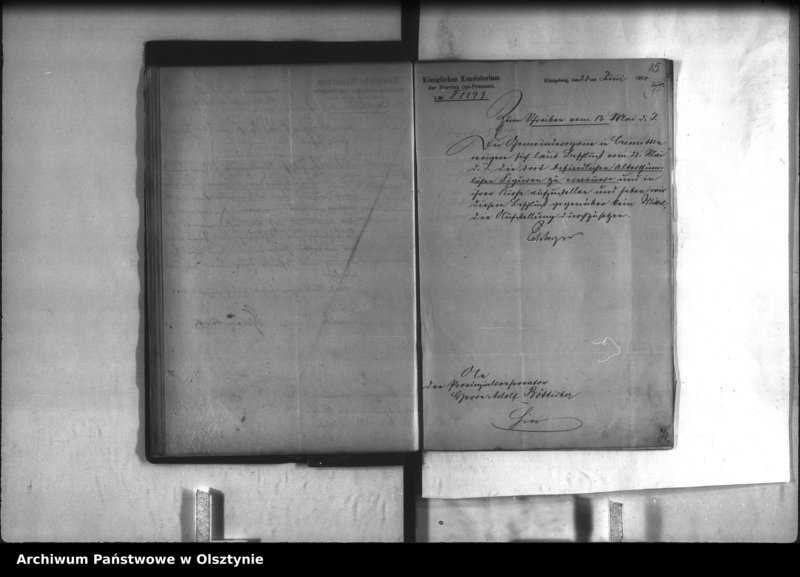 15
Königliches Konsistorium
der Provinz Ost-Preussen.
Königsberg, den 23ten Juni 1890
Zum Schreiben vom 13 Mai d. J.
Die Gemeindeorgane in Cremitten
neigern sich laut Beschluß vom 21. Mai
d. J. die dort befindlichen alterthüm-
lichen Figuren zu erneuern und in
ihrer Kirche aufzustellen und haben wir
diesem Beschluß gegenüber kein Mittel,
die Aufstellung durchzusetzen.
An
den Provinzialconservator
Herrn Adolf Bötticher
Hier
Archiwum Państwowe w Olsztynie